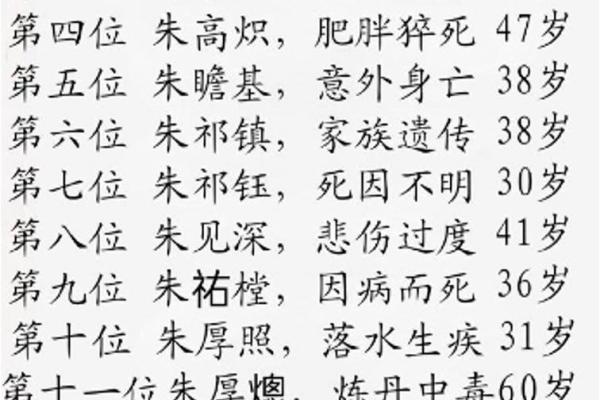 第四位 朱高炽，肥胖猝死 47岁
第五位 朱瞻基，意外身亡 38岁
第六位 朱祁镇，家族遗传 38岁
第七位 朱祁钰，死因不明 30岁
第八位 朱见深，悲伤过度 41岁
第九位 朱祐樘，因病而死 36岁
第十位 朱厚照，落水生疾 31岁
第十一位朱厚熜，炼丹中毒60岁